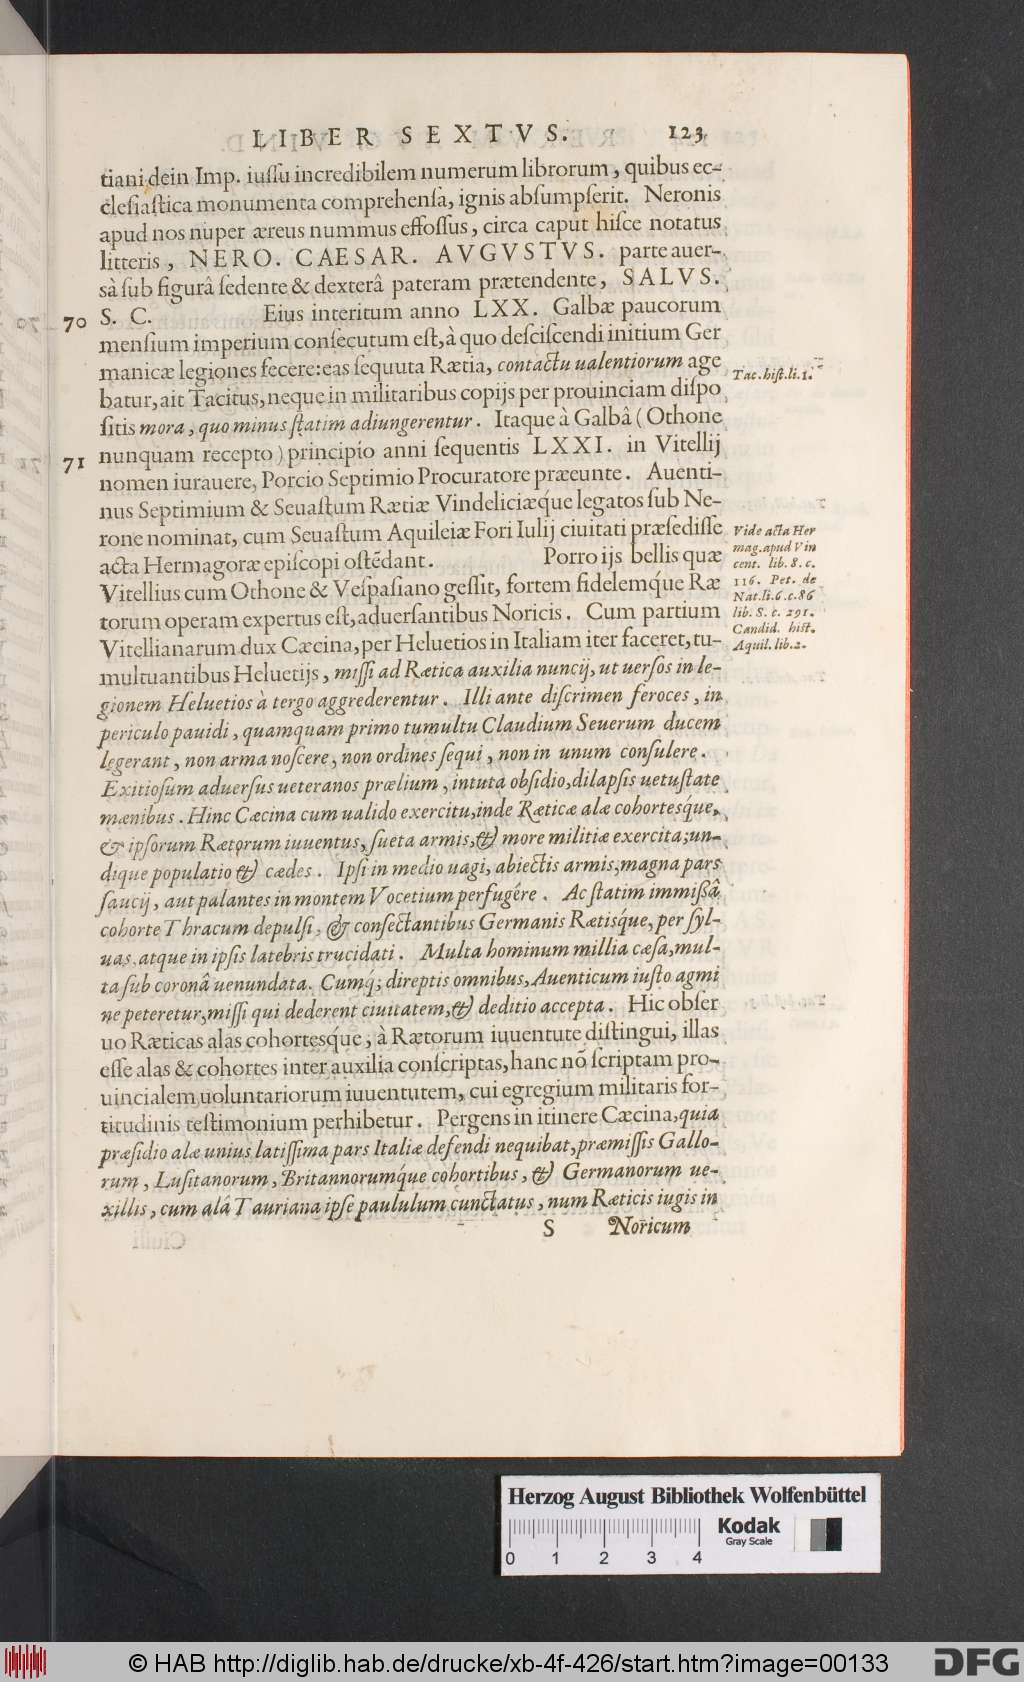 LIBER SEXTVS. 123
tiani dein Imp. iuſſu incredibilem numerum librorum, quibus ec-
cleſiaſtica monumenta comprehenſa, ignis abſumpſerit. Neronis
apud nos nuper æreus nummus effoſſus, circa caput hiſce notatus
litteris, NERO. CAESAR. AVGVSTVS. parte auer-
sà ſub figurâ ſedente & dexterâ pateram prætendente, SALVS.
70 S. C. Eius interitum anno LXX. Galbæ paucorum
menſium imperium conſecutum eſt, à quo deſciſcendi initium Ger
manicæ legiones fecere: eas ſequuta Rætia, contactu ualentiorum age
Tac. hiſt. li. 1.
batur, ait Tacitus, neque in militaribus copijs per prouinciam diſpo
ſitis mora, quo minus ſtatim adiungerentur. Itaque à Galbâ (Othone
71 nunquam recepto) principio anni ſequentis LXXI. in Vitellij
nomen iurauere, Porcio Septimio Procuratore præeunte. Auenti-
nus Septimium & Seuaſtum Rætiæ Vindeliciæq́ue legatos ſub Ne-
rone nominat, cum Seuaſtum Aquileiæ Fori Iulij ciuitati præſediſſe
acta Hermagoræ epiſcopi oſtēdant. Porro ijs bellis quæ
Vitellius cum Othone & Veſpaſiano geſſit, fortem fidelemq́ue Ræ
torum operam expertus eſt, aduerſantibus Noricis. Cum partium
Vitellianarum dux Cæcina, per Heluetios in Italiam iter faceret, tu-
Vide acta Her
mag. apud Vin
cent. lib. 8. c.
116. Pet. de
Nat. li. 6. c. 86
lib. S. c. 291.
Candid. hiſt.
Aquil. lib. 2.
multuantibus Heluetijs, miſſi ad Rætica auxilia nuncij, ut uerſos in le-
gionem Heluetios à tergo aggrederentur. Illi ante diſcrimen feroces, in
periculo pauidi, quamquam primo tumultu Claudium Seuerum ducem
legerant, non arma noſcere, non ordines ſequi, non in unum conſulere.
Exitioſum aduerſus ueteranos prælium, intuta obſidio, dilapſis uetuſtate
mænibus. Hinc Cæcina cum ualido exercitu, inde Ræticæ alæ cohortesque,
& ipſorum Rætorum iuuentus, ſueta armis, & more militiæ exercita; un-
dique populatio & cædes. Ipſi in medio uagi, abiectis armis, magna pars
ſaucij, aut palantes in montem Vocetium perfugére. Ac ſtatim immiſſâ
cohorte Thracum depulſi, & conſectantibus Germanis Rætisq́ue, per ſyl-
uas, atque in ipſis latebris trucidati. Multa hominum millia cæſa, mul-
ta ſub coronâ uenundata. Cumq́; direptis omnibus, Auenticum iuſto agmi
ne peteretur, miſſi qui dederent ciuitatem, & deditio accepta. Hic obſer
uo Ræticas alas cohortesq́ue, à Rætorum iuuentute diſtingui, illas
eſſe alas & cohortes inter auxilia conſcriptas, hanc nō ſcriptam pro-
uincialem uoluntariorum iuuentutem, cui egregium militaris for-
titudinis teſtimonium perhibetur. Pergens in itinere Cæcina, quia
præſidio alæ unius latiſſima pars Italiæ defendi nequibat, præmiſſis Gallo-
rum, Luſitanorum, Britannorumq́ue cohortibus, & Germanorum ue-
xillis, cum alâ Tauriana ipſe paululum cunctatus, num Ræticis iugis in
S Noricum
Herzog August Bibliothek Wolfenbüttel
Kodak
Gray Scale
0 1 2 3 4
© HAB http://diglib.hab.de/drucke/xb-4f-426/start.htm?image=00133
DFG